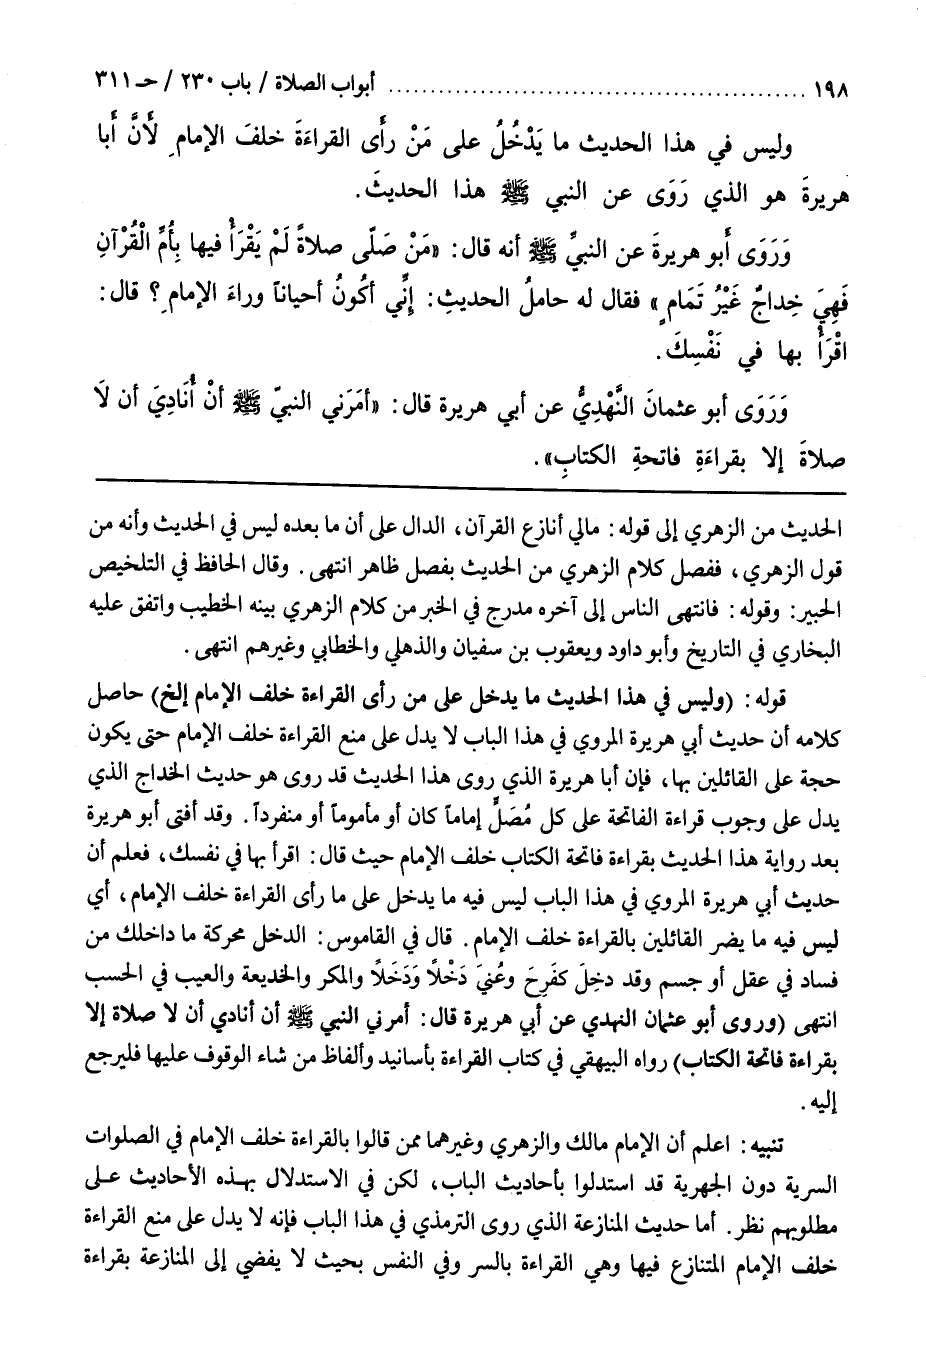 ١٩٨ ................................................ أبواب الصلاة / باب ٢٣٠ / حـ ٣١١
وليس في هذا الحديث ما يَدْخُلُ على مَنْ رأى القراءَةَ خلفَ الإمامِ لأَنَّ أَبا
هريرةَ هو الذي رَوَى عن النبي ﷺ هذا الحديثَ.
وَرَوَى أَبو هريرةَ عن النبيِّ ﷺ أنه قال: «مَن صَلّى صلاةً لَمْ يَقْرَأْ فيها بِأُمِّ الْقُرْآنِ
فَهِيَ خِداجٌ غَيْرُ تَمَامٍ» فقال له حاملُ الحديثِ: إِنِّي أكُونُ أحياناً وراءَ الإمامِ؟ قال:
اقْرَأْ بها في نَفْسِكَ.
وَرَوَى أبو عثمانَ النَّهْدِيُّ عن أبي هريرة قال: «أمَرَني النبيّ ﷺ أنْ أُنَادِيَ أن لَا
صلاةَ إلا بقراءَةِ فاتحةِ الكتابِ».
الحديث من الزهري إلى قوله: مالي أنازع القرآن، الدال على أن ما بعده ليس في الحديث وأنه من
قول الزهري، ففصل كلام الزهري من الحديث بفصل ظاهر انتهى. وقال الحافظ في التلخيص
الحبير: وقوله: فانتهى الناس إلى آخره مدرج في الخبر من كلام الزهري بينه الخطيب واتفق عليه
البخاري في التاريخ وأبو داود ويعقوب بن سفيان والذهلي والخطابي وغيرهم انتهى.
قوله: (وليس في هذا الحديث ما يدخل على من رأى القراءة خلف الإمام إلخ) حاصل
كلامه أن حديث أبي هريرة المروي في هذا الباب لا يدل على منع القراءة خلف الإمام حتى يكون
حجة على القائلين بها، فإن أبا هريرة الذي روى هذا الحديث قد روى هو حديث الخداج الذي
يدل على وجوب قراءة الفاتحة على كل مُصَلٍّ إماماً كان أو مأموماً أو منفرداً. وقد أفتى أبو هريرة
بعد رواية هذا الحديث بقراءة فاتحة الكتاب خلف الإمام حيث قال: اقرأ بها في نفسك، فعلم أن
حديث أبي هريرة المروي في هذا الباب ليس فيه ما يدخل على ما رأى القراءة خلف الإمام، أي
ليس فيه ما يضر القائلين بالقراءة خلف الإمام. قال في القاموس: الدخل محركة ما داخلك من
فساد في عقل أو جسم وقد دخِلَ كفَرِحَ وعُنيَ دَخْلاً وَدَخَلاً والمكر والخديعة والعيب في الحسب
انتهى (وروى أبو عثمان النهدي عن أبي هريرة قال: أمرني النبي ﷺ أن أنادي أن لا صلاة إلا
بقراءة فاتحة الكتاب) رواه البيهقي في كتاب القراءة بأسانيد وألفاظ من شاء الوقوف عليها فليرجع
إليه.
تنبيه: اعلم أن الإمام مالك والزهري وغيرهما ممن قالوا بالقراءة خلف الإمام في الصلوات
السرية دون الجهرية قد استدلوا بأحاديث الباب، لكن في الاستدلال بهذه الأحاديث على
مطلوبهم نظر. أما حديث المنازعة الذي روى الترمذي في هذا الباب فإنه لا يدل على منع القراءة
خلف الإمام المتنازع فيها وهي القراءة بالسر وفي النفس بحيث لا يفضي إلى المنازعة بقراءة